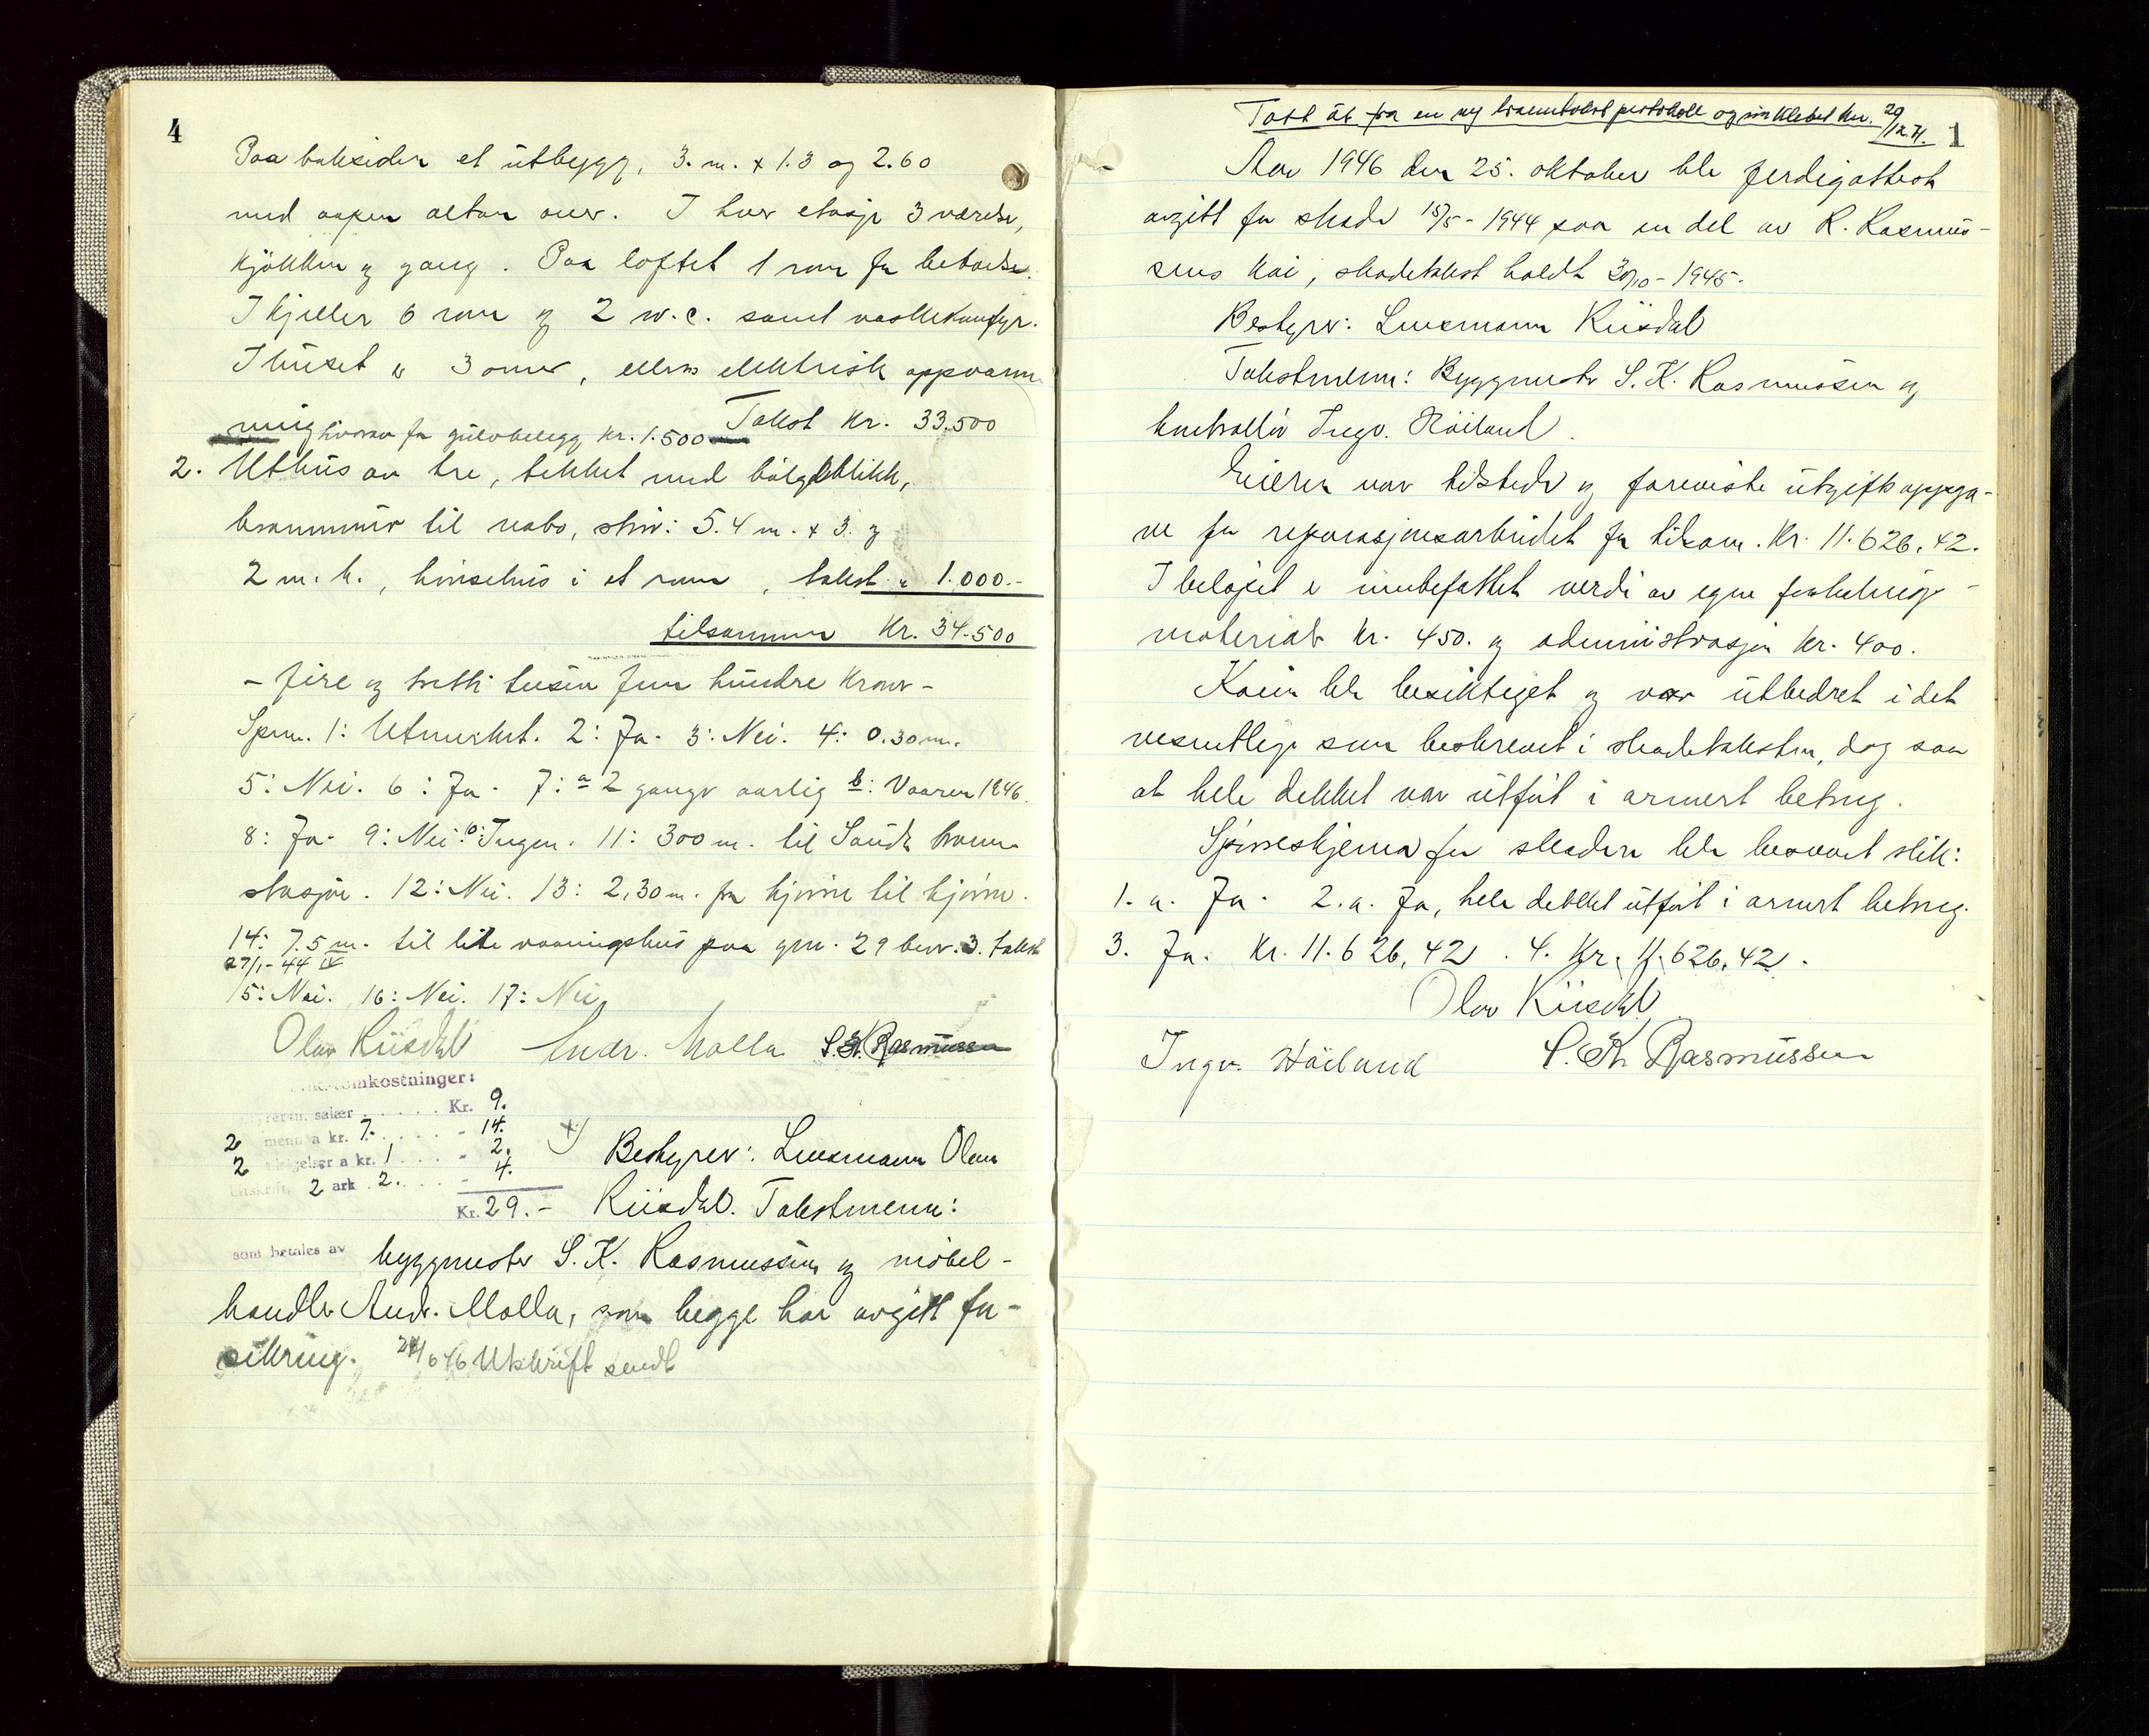 4
Paa baksiden et utbygg, 3. m. x 1.3 og 2.60
med aapen altan over. I hver etasje 3 værelser,
kjökken og gang. Paa loftet 1 rom for beboelse.
I kjeller 6 rom og 2 w.c. samt vaskekomfyr.
I huset er 3 ovner, ellers elektrisk oppvarm
ning hvorav for gulvbelegg kr. 1.500 Takst kr. 33.500
2. Uthus av tre, tekket med bölgeblikk,
brannmur til nabo, stör: 5.4 m. x 3. og
2 m. h., hönsehus i et rom, takst " 1.000.-
tilsammen Kr. 34.500
- fire og tretti tusen fem hundre kroner -
Spm. 1: Utmerket. 2: Ja. 3: Nei. 4: 0.30 m.
5: Nei. 6: Ja. 7: a 2 ganger aarlig b: Vaaren 1946.
8: Ja. 9: Nei. 10: Ingen. 11: 300 m. til Sauda brann
stasjon. 12: Nei. 13: 2,30 m. fra hjörne til hjörne.
14: 7.5 m. til lite vaaningshus paa gnr. 29 bnr. 3. takst
27/1-44 IV
15: Nei. 16: Nei. 17: Nei
Olav Riisdal Andr. Molla S. K. Rasmussen
omkostninger:
salær Kr. 9.
2 menn a kr. 7. - 14.
2 a kr. 1 - 2.
2 ark 2. - 4.
Kr. 29.-
som betales av
x) Bestyrer: Lensmann Olav
Riisdal. Takstmenn:
byggmester S. K. Rasmussen og möbel-
handler Andr. Molla, som begge har avgitt for-
sikring. 24/6 46 Utskrift sendt
Tatt ut fra en ny branntakst protokoll og innklebet her. 29/12.71.
1
Aar 1946 den 25. oktober ble ferdigattest
avgitt for skade 15/5-1944 paa en del av R. Rasmus-
sens kai, skadetakst holdt 30/10-1945.
Bestyrer: Lensmann Riisdal
Takstmenn: Byggmester S. K. Rasmussen og
kontrollör Ingv. Höiland.
Eieren var tilstede og foreviste utgiftsoppga-
ve for reparasjonsarbeidet for tilsam. Kr. 11.626,42.
I belöpet er innbefattet verdi av egne forhalings-
materialer kr. 450. og administrasjon kr. 400.
Kaien ble besiktiget og var utbedret i det
vesentlige som beskrevet i skadetaksten, dog saa
at hele dekket var utfört i armert betong.
Spörreskjema for skaden ble besvart slik:
1. a. Ja. 2. a. Ja, hele dekket utfört i armert betong.
3. Ja. Kr. 11.626,42. 4. Kr. 11.626,42.
Olav Riisdal
Ingv. Höiland S. K. Rasmussen